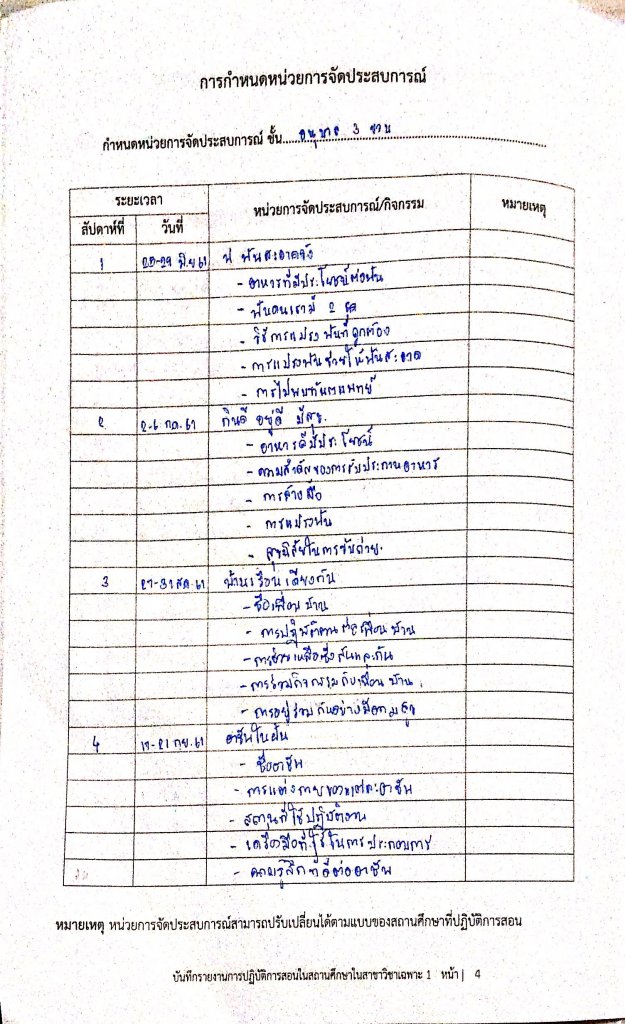 การกำหนดหน่วยการจัดประสบการณ์
กำหนดหน่วยการจัดประสบการณ์ ชั้น อนุบาล 3 ขวบ
ระยะเวลา หน่วยการจัดประสบการณ์/กิจกรรม หมายเหตุ
สัปดาห์ที่ วันที่
1 25-29 มิ.ย 61 ฟันสะอาดจัง
- อาหารที่มีประโยชน์ต่อฟัน
- ฟันคนเรามี 2 ชุด
- วิธีการแปรงฟันที่ถูกต้อง
- การแปรงฟันช่วยให้ฟันสะอาด
- การไปพบทันตแพทย์
2 2-6 ก.ค. 61 กินดี อยู่ดี มีสุข
- อาหารดีมีประโยชน์
- ความสำคัญของการรับประทานอาหาร
- การล้างมือ
- การแปรงฟัน
- สุขนิสัยในการขับถ่าย
3 27-31 ส.ค. 61 บ้านเรือนเคียงกัน
- ชื่อเพื่อนบ้าน
- การปฏิบัติตนต่อเพื่อนบ้าน
- การช่วยเหลือซึ่งกันและกัน
- การร่วมกิจกรรมกับเพื่อนบ้าน
- การอยู่ร่วมกันอย่างมีความสุข
4 17-21 ก.ย. 61 อาชีพในฝัน
- ชื่ออาชีพ
- การแต่งกายของแต่ละอาชีพ
- สถานที่ใช้ปฏิบัติงาน
- เครื่องมือที่ใช้ในการประกอบการ
- ความรู้สึกที่ดีต่ออาชีพ
หมายเหตุ หน่วยการจัดประสบการณ์สามารถปรับเปลี่ยนได้ตามแบบของสถานศึกษาที่ปฏิบัติการสอน
บันทึกรายงานการปฏิบัติการสอนในสถานศึกษาในสาขาวิชาเฉพาะ 1 หน้า | 4